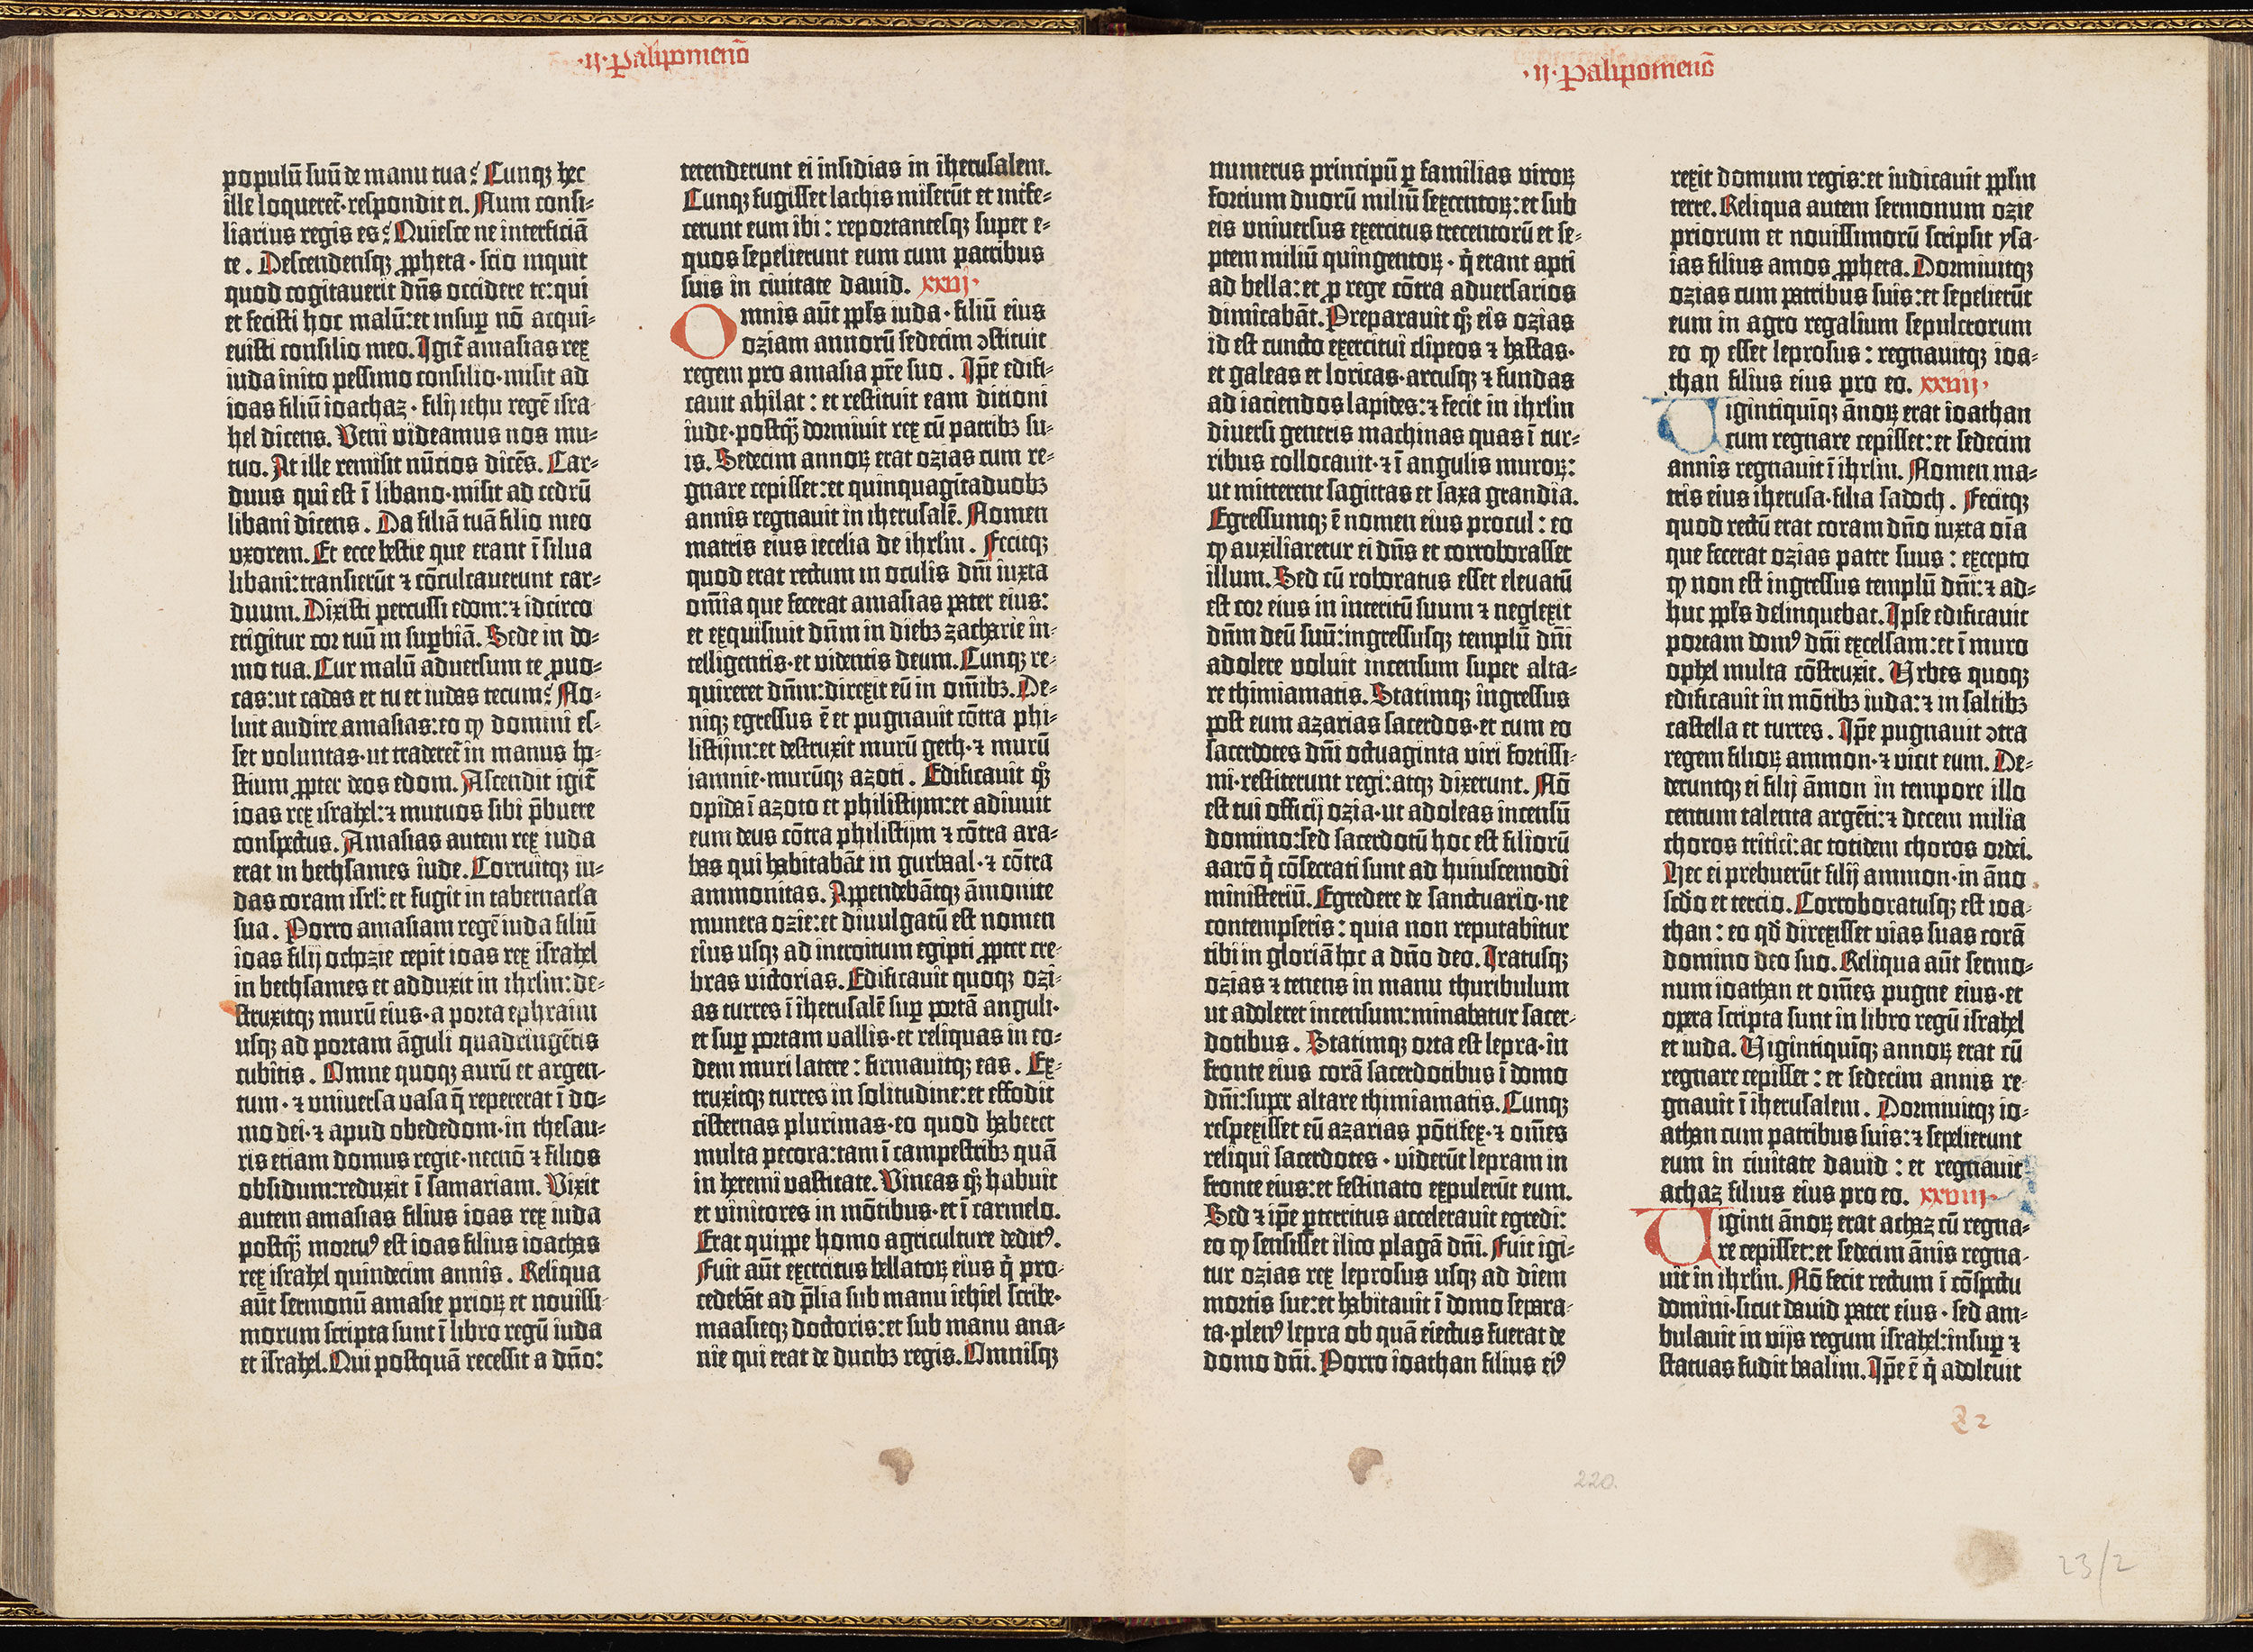 ·ij·Palipomenō
populū suū de manu tua? Cunqȝ hec
ille loqueret̄· respondit ei. Num consi⸗
liarius regis es? Quiesce ne interficiā
te. Descendensqȝ ꝓpheta· scio inquit
quod cogitauerit dn̄s occidere te: qui
et fecisti hoc malū: et insuꝑ nō acqui⸗
euisti consilio meo. Igit̄ amasias rex
iuda inito pessimo consilio· misit ad
ioas filiū ioachaz· filij iehu regē isra
hel dicens. Veni videamus nos mu⸗
tuo. At ille remisit nūcios dicēs. Car⸗
duus qui est ī libano· misit ad cedrū
libani dicens. Da filiā tuā filio meo
vxorem. Et ecce bestie que erant ī silua
libani: transierūt ⁊ cōculcauerunt car⸗
duum. Dixisti percussi edom: ⁊ idcirco
erigitur cor tuū in suꝑbiā. Sede in do⸗
mo tua. Cur malū aduersum te ꝓuo⸗
cas: ut cadas et tu et iudas tecum? No⸗
luit audire amasias: eo ꝙ domini es⸗
set voluntas· ut traderet̄ in manus ho⸗
stium ꝓpter deos edom. Ascendit igit̄
ioas rex israhel: ⁊ mutuos sibi p̄buere
conspectus. Amasias autem rex iuda
erat in bethsames iude. Corruitqȝ iu⸗
das coram isrl̄: et fugit in tabernacl̄a
sua. Porro amasiam regē iuda filiū
ioas filij ochozie cepit ioas rex israhel
in bethsames et adduxit in ihrlm̄: de⸗
struxitqȝ murū eius· a porta ephraim
usqȝ ad portam āguli quadringētis
cubitis. Omne quoqȝ aurū et argen⸗
tum· ⁊ vniuersa vasa q̄ repererat ī do⸗
mo dei· ⁊ apud obededom· in thesau⸗
ris etiam domus regie· necnō ⁊ filios
obsidum: reduxit ī samariam. Vixit
autem amasias filius ioas rex iuda
postqꝫ̄ mortuꝰ est ioas filius ioachas
rex israhel quindecim annis. Reliqua
aūt sermonū amasie prioꝝ et nouissi⸗
morum scripta sunt ī libro regū iuda
et israhel. Qui postquā recessit a dn̄o:
tetenderunt ei insidias in iherusalem.
Cunqȝ fugisset lachis miserūt et infe⸗
cerunt eum ibi: reportantesqȝ super e⸗
quos sepelierunt eum cum patribus
suis in ciuitate dauid. xxvij·
Omnis aūt ppl̄s iuda· filiū eius
oziam annorū sedecim ↄstituit
regem pro amasia pr̄e suo. Ip̄e edifi⸗
cauit ahilat: et restituit eam ditioni
iude· postqꝫ̄ dormiuit rex cū patribȝ su⸗
is. Sedecim annoꝝ erat ozias cum re⸗
gnare cepisset: et quinquagītaduobȝ
annis regnauit in iherusalē. Nomen
matris eius iecelia de ihrlm̄. Fecitqȝ
quod erat rectum in oculis dn̄i iuxta
om̄ia que fecerat amasias pater eius:
et exquisiuit dn̄m in diebȝ zacharie in⸗
telligentis· et videntis deum. Cunqȝ re⸗
quireret dn̄m: direxit eū in om̄ibȝ. De⸗
niqȝ egressus ē et pugnauit cōtra phi⸗
listijm: et destruxit murū geth· ⁊ murū
iamnie· murūqȝ azoti. Edificauit qͦꝫ
opida ī azoto et philistijm: et adiuuit
eum deus cōtra philistijm ⁊ cōtra ara⸗
bas qui habitabāt in gurbaal· ⁊ cōtra
ammonitas. Appendebātqȝ āmonite
munera ozie: et diuulgatū est nomen
eius usqȝ ad introitum egipti ꝓpter cre⸗
bras victorias. Edificauit quoqȝ ozi⸗
as turres ī iherusalē suꝑ portā anguli·
et suꝑ portam vallis· et reliquas in eo⸗
dem muri latere: firmauitqȝ eas. Ex⸗
truxitqȝ turres in solitudine: et effodit
cisternas plurimas· eo quod haberet
multa pecora: tam ī campestribȝ quā
in heremi vastitate. Vineas qͦꝫ habuit
et vinitores in mōtibus· et ī carmelo.
Erat quippe homo agriculture deditꝰ.
Fuit aūt exercitus bellatoꝝ eius q̇ pro⸗
cedebāt ad p̄lia sub manu iehiel scribe·
maasieqȝ doctoris: et sub manu ana⸗
nie qui erat de ducibȝ regis. Omnisqȝ
·ij·Palipomenō
numerus principū ꝑ familias viroꝝ
fortium duorū miliū sexcentoꝝ: et sub
eis vniuersus exercitus trecentorū et se⸗
ptem miliū quingentoꝝ· q̇ erant apti
ad bella: et ꝓ rege cōtra aduersarios
dimicabāt. Preparauit qͦꝫ eis ozias
id est cuncto exercitui clipeos ⁊ hastas·
et galeas et loricas· arcusqȝ ⁊ fundas
ad iaciendos lapides: ⁊ fecit in ihrlm̄
diuersi generis machinas quas ī tur⸗
ribus collocauit· ⁊ ī angulis muroꝝ:
ut mitterent sagittas et saxa grandia.
Egressumqȝ ē nomen eius procul: eo
ꝙ auxiliaretur ei dn̄s et corroborasset
illum. Sed cū roboratus esset eleuatū
est cor eius in interitū suum ⁊ neglexit
dn̄m deū suū: ingressusqȝ templū dn̄i
adolere voluit incensum super alta⸗
re thimiamatis. Statimqȝ ingressus
post eum azarias sacerdos· et cum eo
sacerdotes dn̄i octuaginta viri fortissi⸗
mi· restiterunt regi: atqȝ dixerunt. Nō
est tui officij ozia· ut adoleas incensū
domino: sed sacerdotū hoc est filiorū
aarō q̇ cōsecrati sunt ad huiuscemodi
ministeriū. Egredere de sanctuario· ne
contempseris: quia non reputabitur
tibi in gloriā hoc a dn̄o deo. Iratusqȝ
ozias ⁊ tenens in manu thuribulum
ut adoleret incensum: minabatur sacer⸗
dotibus. Statimqȝ orta est lepra· in
fronte eius corā sacerdotibus ī domo
dn̄i: super altare thimiamatis. Cunqȝ
respexisset eū azarias pōtifex· ⁊ om̄es
reliqui sacerdotes· viderūt lepram in
fronte eius: et festinato expulerūt eum.
Sed ⁊ ip̄e ꝑterritus accelerauit egredi:
eo ꝙ sensisset ilico plagā dn̄i. Fuit igi⸗
tur ozias rex leprosus usqȝ ad diem
mortis sue: et habitauit ī domo separa⸗
ta· plenꝰ lepra ob quā eiectus fuerat de
domo dn̄i. Porro ioathan filius eiꝰ
rexit domum regis: et iudicauit ppl̄m
terre. Reliqua autem sermonum ozie
priorum et nouissimorū scripsit ysa⸗
ias filius amos ꝓpheta. Dormiuitqȝ
ozias cum patribus suis: et sepelierūt
eum in agro regalium sepulcrorum
eo ꝙ esset leprosus: regnauitqȝ ioa⸗
than filius eius pro eo. xxvij·
Vigintiquīqȝ ānoꝝ erat ioathan
cum regnare cepisset: et sedecim
annis regnauit ī ihrlm̄. Nomen ma⸗
tris eius iherusa· filia sadoch. Fecitqȝ
quod rectū erat coram dn̄o iuxta oīa
que fecerat ozias pater suus: excepto
ꝙ non est ingressus templū dn̄i: ⁊ ad⸗
huc ppl̄s delinquebat. Ipse edificauit
portam domꝰ dn̄i excelsam: et ī muro
ophel multa cōstruxit. Urbes quoqȝ
edificauit in mōtibȝ iuda: ⁊ in saltibȝ
castella et turres. Ip̄e pugnauit ↄtra
regem filioꝝ ammon· ⁊ vicit eum. De⸗
deruntqȝ ei filij āmon in tempore illo
centum talenta argēti: ⁊ decem milia
choros tritici: ac totidem choros ordei.
Hec ei prebuerūt filij ammon· in āno
scd̄o et tercio. Corroboratusqȝ est ioa⸗
than: eo qd̄ direxisset vias suas corā
domino deo suo. Reliqua aūt sermo⸗
num ioathan et om̄es pugne eius· et
opera scripta sunt in libro regū israhel
et iuda. Vigintiquīqȝ annoꝝ erat cū
regnare cepisset: et sedecim annis re⸗
gnauit ī iherusalem. Dormiuitqȝ io⸗
athan cum patribus suis: ⁊ sepelierunt
eum in ciuitate dauid: et regnauit
achaz filius eius pro eo. xxviij·
Viginti ānoꝝ erat achaz cū regna⸗
re cepisset: et sedecim ānis regna⸗
uit in ihrlm̄. Nō fecit rectum ī cōspectu
domini· sicut dauid pater eius· sed am⸗
bulauit in vijs regum israhel: insuꝑ ⁊
statuas fudit baalim. Ip̄e ē q̇ adoleuit
220.
23/2